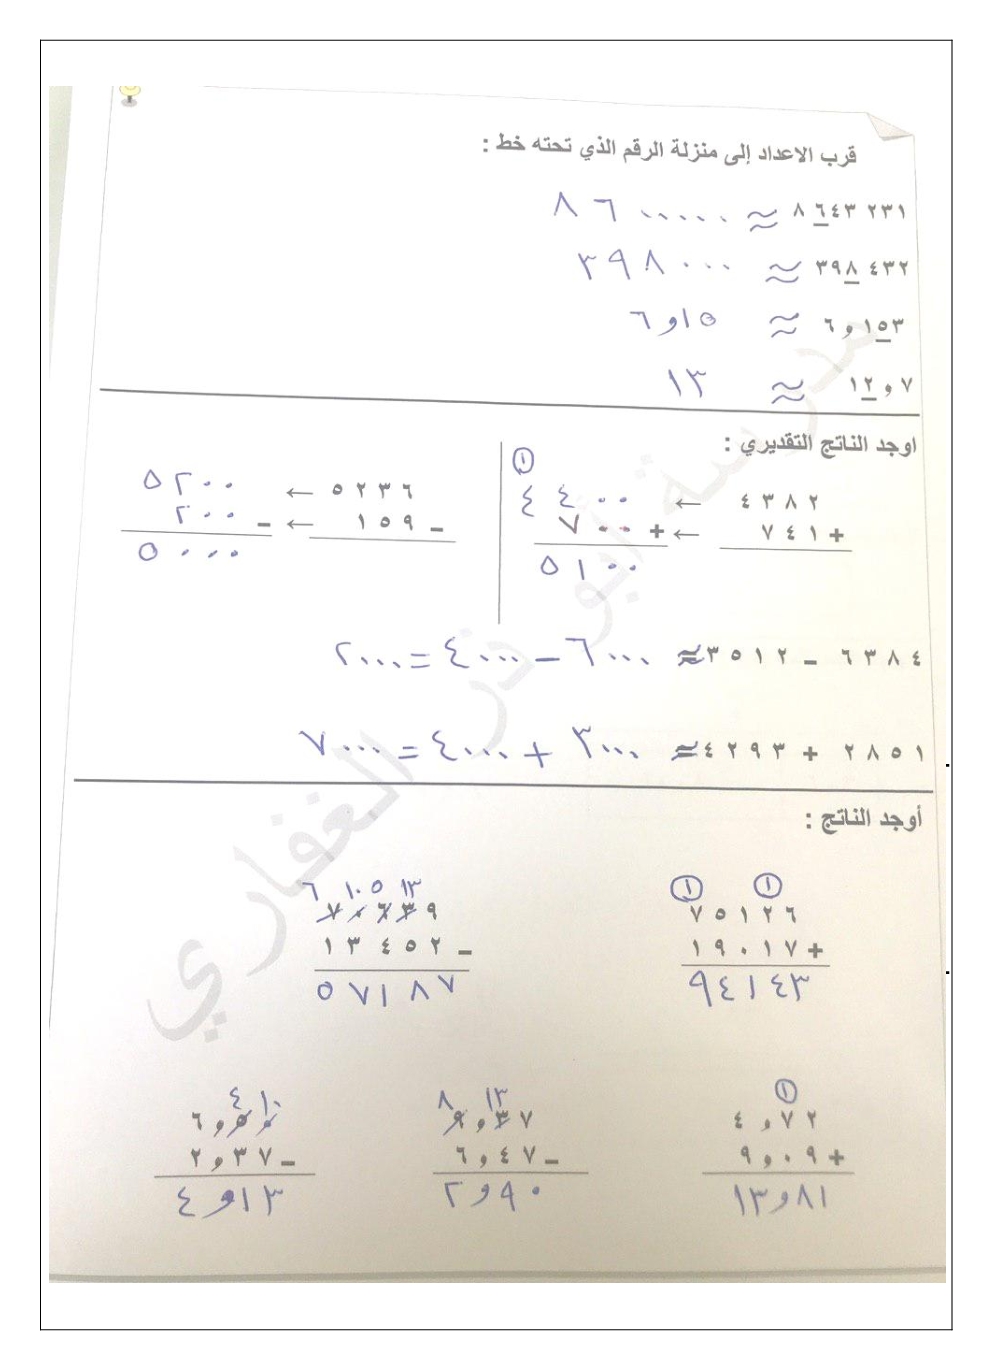 قرب الاعداد إلى منزلة الرقم الذي تحته خط :
٨ ٦٤٣ ٢٣١ ≈ ٨ ٦ ٠٠٠٠٠
٣٩٨ ٤٣٢ ≈ ٣٩٨ ٠٠٠
٦ و ١٥٣ ≈ ٦ و ١٥
١٢ و ٧ ≈ ١٣
اوجد الناتج التقديري :
①
٤ ٣ ٨ ٢ ← ٤ ٤ ٠٠
٧ ٤ ١ + ← ٧ ٠٠ +
٥ ١ ٠٠
٥ ٢ ٣ ٦ ← ٥ ٢ ٠٠
١ ٥ ٩ − ← ٢ ٠٠ −
٥ ٠٠٠
٦ ٣ ٨ ٤ − ٣ ٥ ١ ٢ ≈ ٦٠٠٠ − ٤٠٠٠ = ٢٠٠٠
٢ ٨ ٥ ١ + ٤ ٢ ٩ ٣ ≈ ٣٠٠٠ + ٤٠٠٠ = ٧٠٠٠
أوجد الناتج :
① ①
٧ ٥ ١ ٢ ٦
١ ٩ ٠ ١ ٧ +
٩٤١٤٣
٦ ١٠ ٥ ١٣
٧ ٠ ٦ ٣ ٩
١ ٣ ٤ ٥ ٢ −
٥ ٧ ١ ٨ ٧
①
٤ و ٧ ٢
٩ و ٠ ٩ +
١٣ و ٨١
٨ ١٣
٩ و ٣ ٧
٦ و ٤ ٧ −
٢ و ٩ ٠
٤ ١٠
٦ و ٥ ٠
٢ و ٣ ٧ −
٤ و ١٣
مدرسة أبو ذر الغفاري